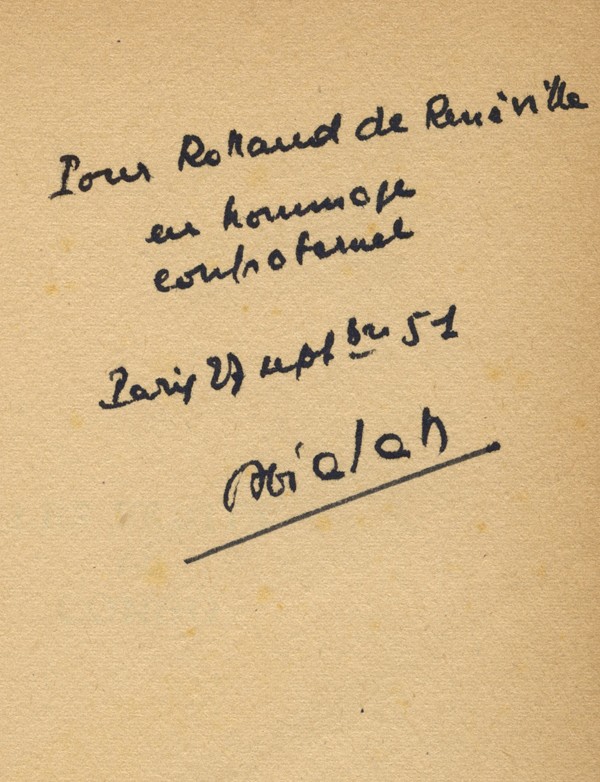 Pour Rolland de Renéville
en hommage
confraternel
Paris 27 septbre 51